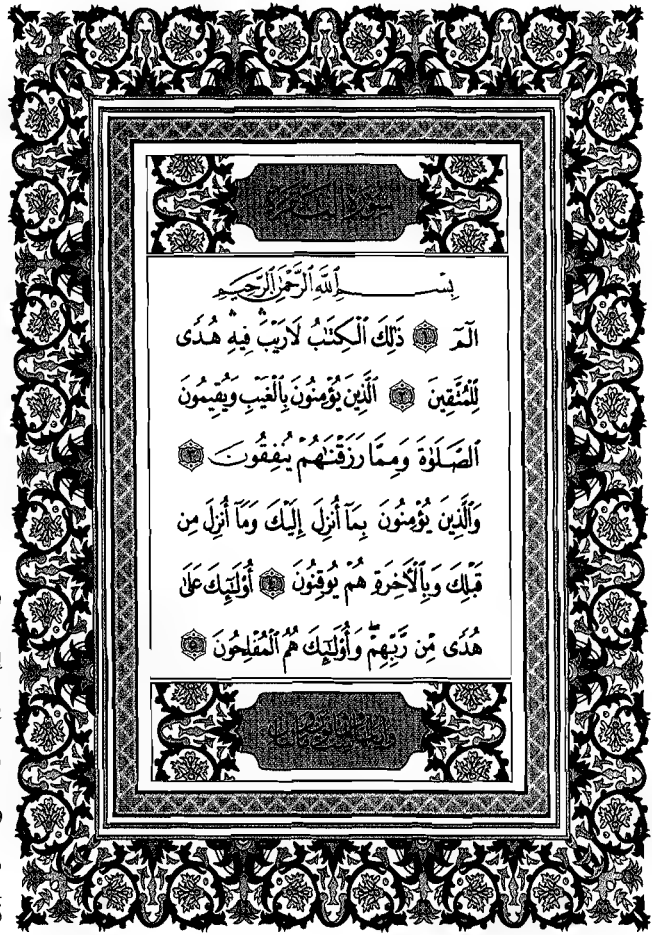 سُورَةُ البَقَرَةِ
بِسْمِ ٱللَّهِ ٱلرَّحْمَٰنِ ٱلرَّحِيمِ
الٓمٓ ۝١ ذَٰلِكَ ٱلْكِتَٰبُ لَا رَيْبَ ۛ فِيهِ ۛ هُدًى
لِّلْمُتَّقِينَ ۝٢ ٱلَّذِينَ يُؤْمِنُونَ بِٱلْغَيْبِ وَيُقِيمُونَ
ٱلصَّلَوٰةَ وَمِمَّا رَزَقْنَٰهُمْ يُنفِقُونَ ۝٣
وَٱلَّذِينَ يُؤْمِنُونَ بِمَآ أُنزِلَ إِلَيْكَ وَمَآ أُنزِلَ مِن
قَبْلِكَ وَبِٱلْأَخِرَةِ هُمْ يُوقِنُونَ ۝٤ أُو۟لَٰٓئِكَ عَلَىٰ
هُدًى مِّن رَّبِّهِمْ ۖ وَأُو۟لَٰٓئِكَ هُمُ ٱلْمُفْلِحُونَ ۝٥